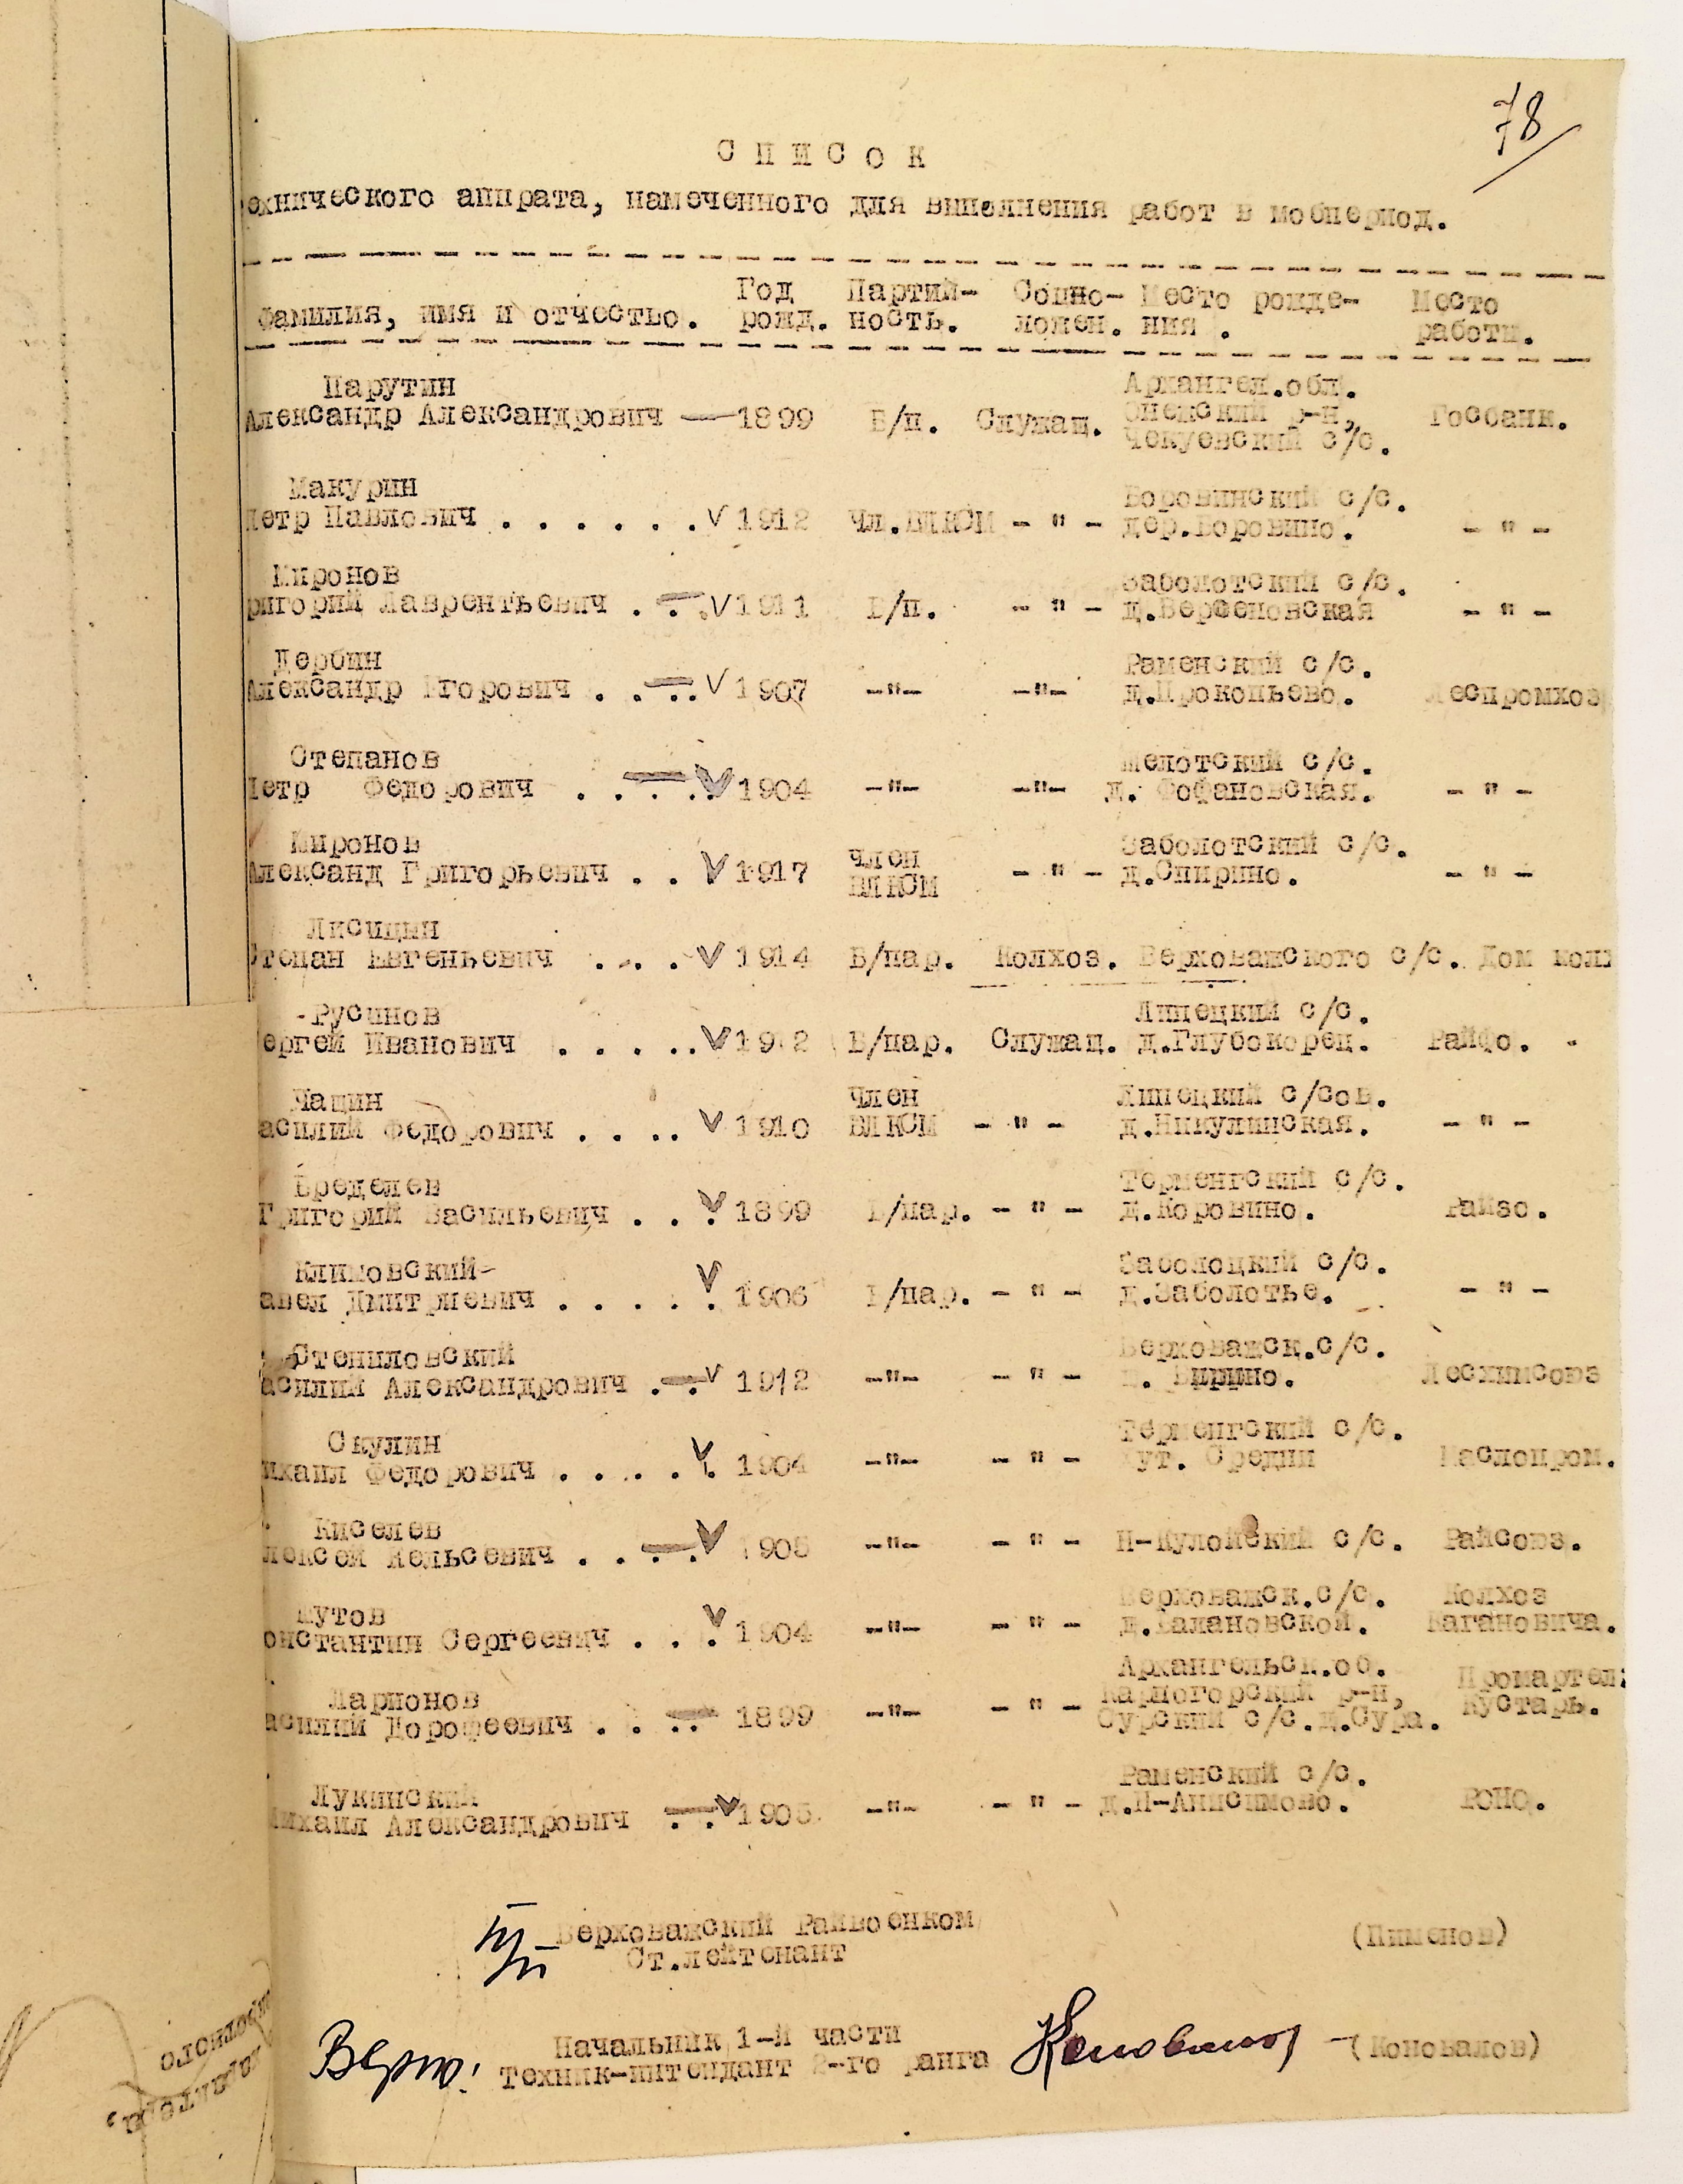 78
СПИСОК
ехнического аппрата, намеченного для выполнения работ в мобпериод.
Год Партий- Соцпо- Место рожде- Место
Фамилия, имя и отчество. рожд. ность. ложен. ния . работы.
Парутин Архангел.обл.
Александр Александрович — 1899 Б/п. Служащ. Онежский р-н, Госбанк.
Чекуевский с/с.
Макурин Боровинский с/с.
Петр Павлович . . . . . . V 1912 Чл.ВЛКСМ - " - дер.Боровино. - " -
Миронов Заболотский с/с.
ригорий Лаврентьевич . . . V 1911 Б/п. - " - д.Верфеновская - " -
Дербин Раменский с/с.
Александр Егорович . . . . V 1907 -"- -"- д.Прокопьево. Леспромхоз
Степанов Шелотский с/с.
Петр Федорович . . . . . V 1904 -"- -"- д. Фофановская. - " -
Миронов Заболотский с/с.
Александ Григорьевич . . V 1917 член ВЛКСМ - " - д.Спирино. - " -
Лисицын
Степан Евгеньевич . . . . V 1914 Б/пар. Колхоз. Верховажского с/с. Дом колх
-Русинов Липецкий с/с.
ергей Иванович . . . . . V 19 2 Б/пар. Служащ. д.Глубокорец. Райфо.
Чащин член Липецкий с/сов.
асилий Федорович . . . . V 1910 ВЛКСМ - " - д.Никулинская. - " -
Бределев Терменгский с/с.
Григорий Васильевич . . . V 1899 Б/пар. - " - д.Коровино. Райзо.
Климовский- Заболоцкий с/с.
авел Дмитриевич . . . . . V 1906 Б/пар. - " - д.Заболотье. - " -
Стениловский Верховажск.с/с.
асилий Александрович . — V 1912 -"- - " - Лесхимсоюз
Скулин Терменгский с/с.
ихаил Федорович . . . . . V 1904 -"- - " - хут. Средни Маслопром.
Киселев
лексей Нельсевич . . . . V 1905 -"- - " - Н-Кулойский с/с. Райсоюз.
Шутов Верховажск.с/с. Колхоз
онстантин Сергеевич . . . V 1904 -"- - " - Кагановича.
Архангельск.об. Промартел
Ларионов Карпогорский р-н, Кустарь.
асилий Дорофеевич . . . . 1899 -"- - " - Сурский с/с.д.Сура.
Лукинский Раменский с/с.
Михаил Александрович . . V 1905. -"- - " - д.П-Анисимово. РОНО.
п/п Верховажский Райвоенком (Пименов)
Ст.лейтенант
Верно: Начальник 1-й части
Техник-интендант 2-го ранга Коновалов -(Коновалов)